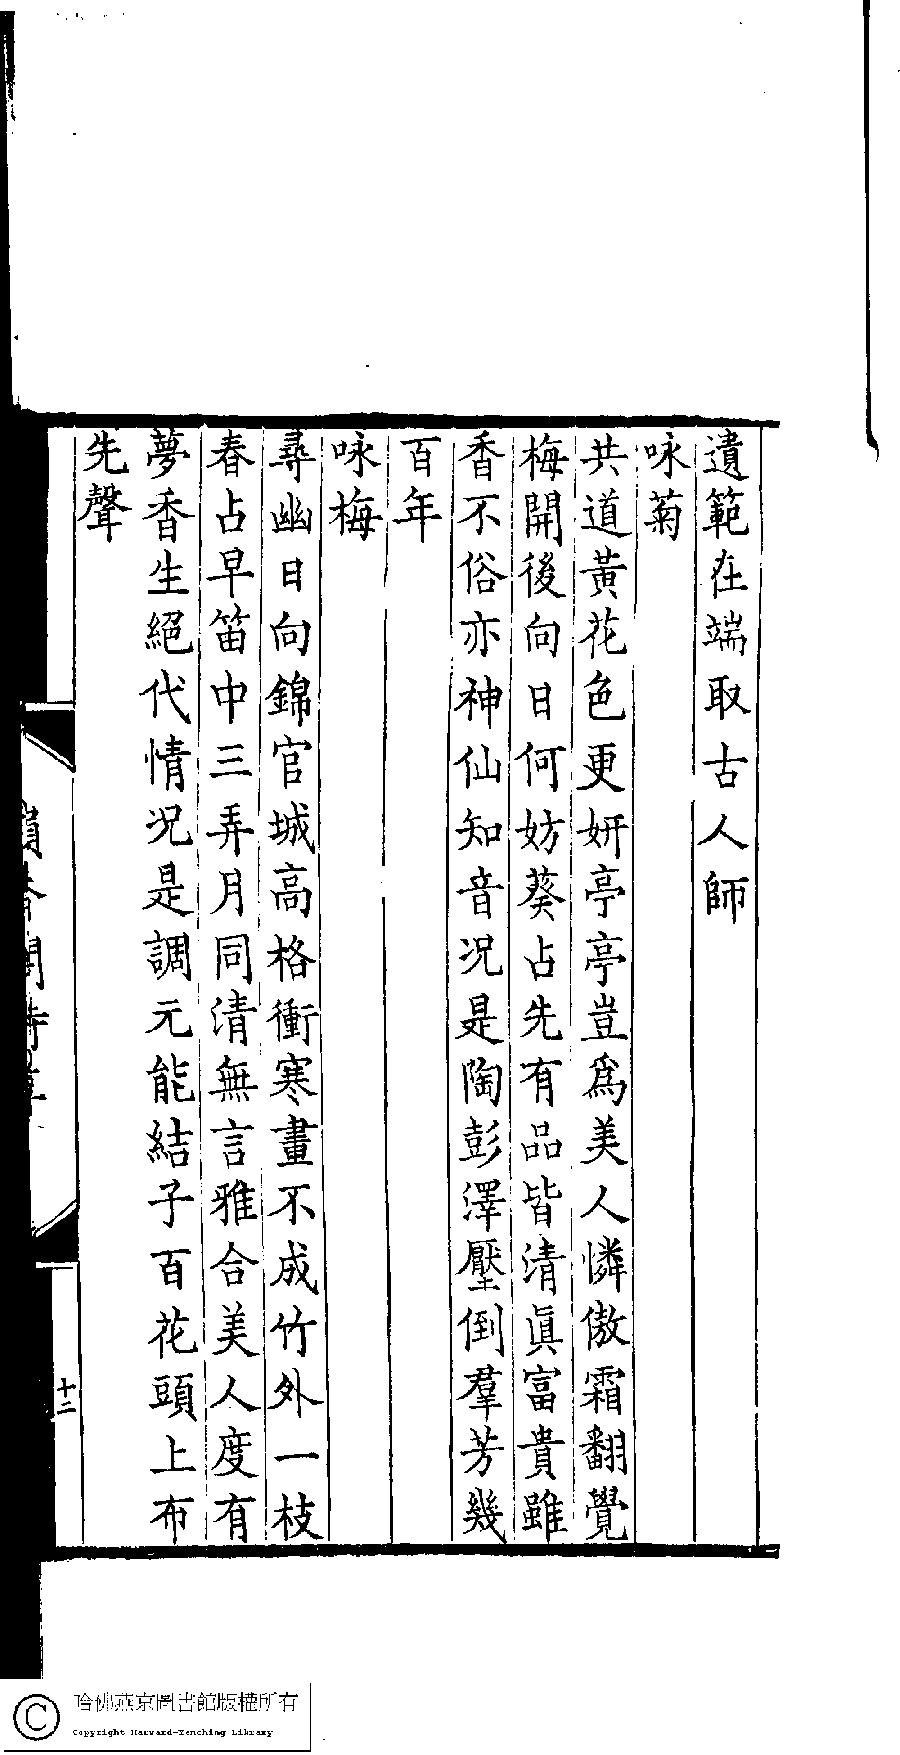 遺範在端取古人師
咏菊
共道黃花色更妍亭亭豈爲美人憐傲霜翻覺
梅開後向日何妨葵占先有品皆清眞富貴雖
香不俗亦神仙知音况是陶彭澤壓倒羣芳幾
百年
咏梅
尋幽日向錦官城高格衝寒畫不成竹外一枝
春占早笛中三弄月同清無言雅合美人度有
夢香生絕代情况是調元能結子百花頭上布
先聲
十二
哈佛燕京圖書館版權所有
Copyright Harvard-Yenching Library